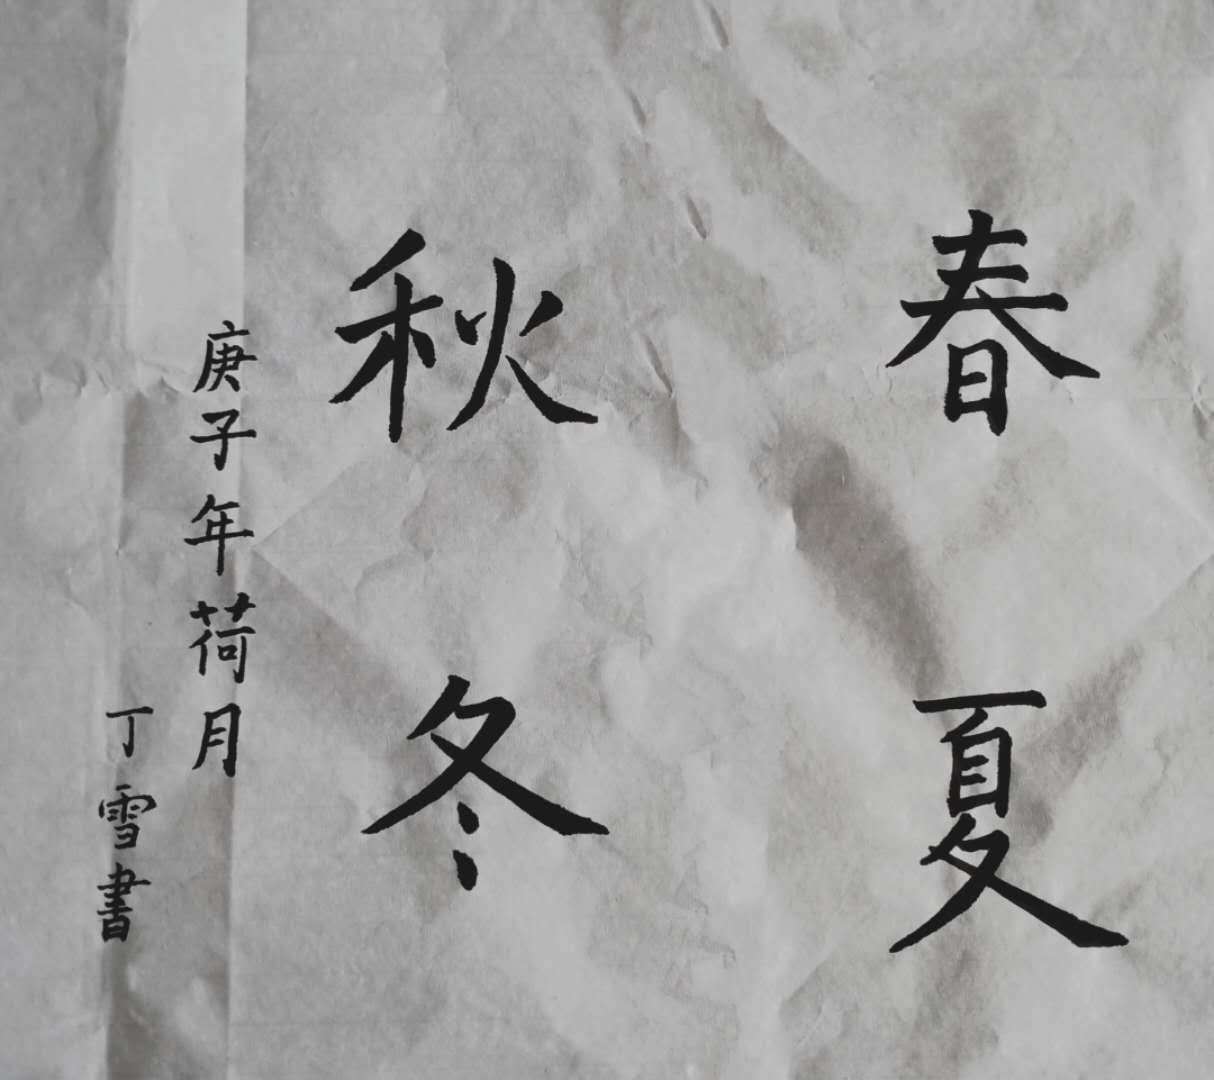 春夏
秋冬
庚子年荷月
丁雪書